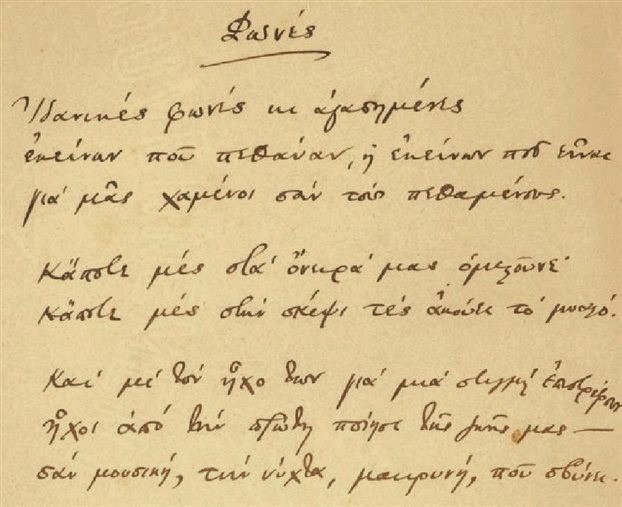 Φωνές
Ἰδανικές φωνές κι ἀγαπημένες
ἐκείνων ποῦ πεθάναν, ἤ ἐκείνων ποῦ εἶναι
γιά μᾶς χαμένοι σάν τούς πεθαμένους.
Κάποτε μές στά ὄνειρά μας ὁμιλοῦνε·
κάποτε μές στήν σκέψι τές ἀκούει τό μυαλό.
Καί μέ τόν ἦχο των γιά μιά στιγμή ἐπιστρέφουν
ἦχοι ἀπό τήν πρώτη ποίησι τῆς ζωῆς μας —
σάν μουσική, τήν νύχτα, μακρυνή, ποῦ σβύνει.